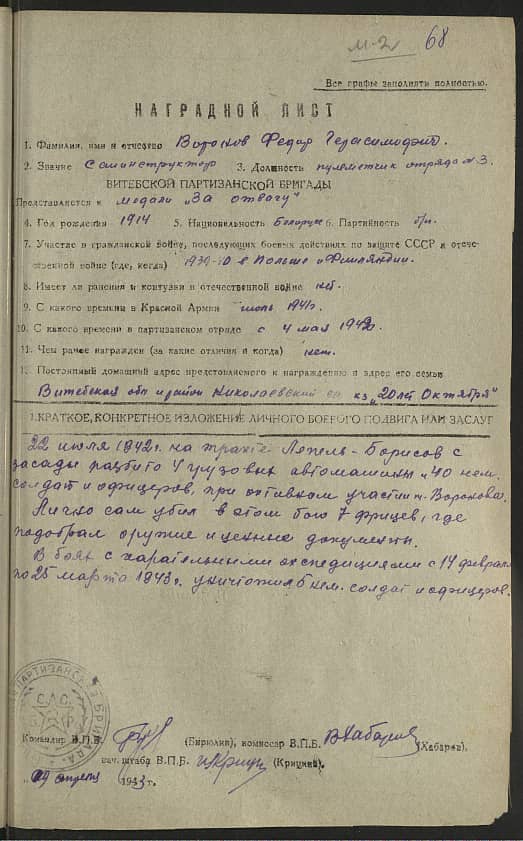 м-2 68
Все графы заполнять полностью.
НАГРАДНОЙ ЛИСТ
1. Фамилия, имя и отчество Воронов Федор Герасимович.
2. Звание Санинструктор 3. Должность пулеметчик отряда №3.
ВИТЕБСКОЙ ПАРТИЗАНСКОЙ БРИГАДЫ
Представляется к медали „За отвагу"
4. Год рождения 1914 5. Национальность белорус 6. Партийность б/п.
7. Участие в гражданской войне, последующих боевых действиях по защите СССР и отече-
ственной войне (где, когда) 1939-40 в Польше и Финляндии.
8. Имеет ли ранения и контузии в отечественной войне нет.
9. С какого времени в Красной Армии июль 1941г.
10. С какого времени в партизанском отряде с 4 мая 1942г.
11. Чем ранее награжден (за какие отличия и когда) нет.
12. Постоянный домашний адрес представляемого к награждению и адрес его семьи
Витебская обл и район Николаевский с/с к-з „20 лет Октября"
1. КРАТКОЕ, КОНКРЕТНОЕ ИЗЛОЖЕНИЕ ЛИЧНОГО БОЕВОГО ПОДВИГА ИЛИ ЗАСЛУГ
22 июля 1942г. на тракте Лепель-Борисов с
засады разбито 4 грузовых автомашины и 40 нем.
солдат и офицеров, при активном участии т. Воронова.
Лично сам убил в этом бою 7 фрицев, где
подобрал оружие и ценные документы.
В боях с карательными экспедициями с 14 февраля
по 25 марта 1943г. уничтожил 6 нем. солдат и офицеров.
Командир В.П.Б. (Бирюлин), комиссар В.П.Б. ВХабаров (Хабаров)
нач. штаба В.П.Б. (Крицкий)
„ апреля 1943г.